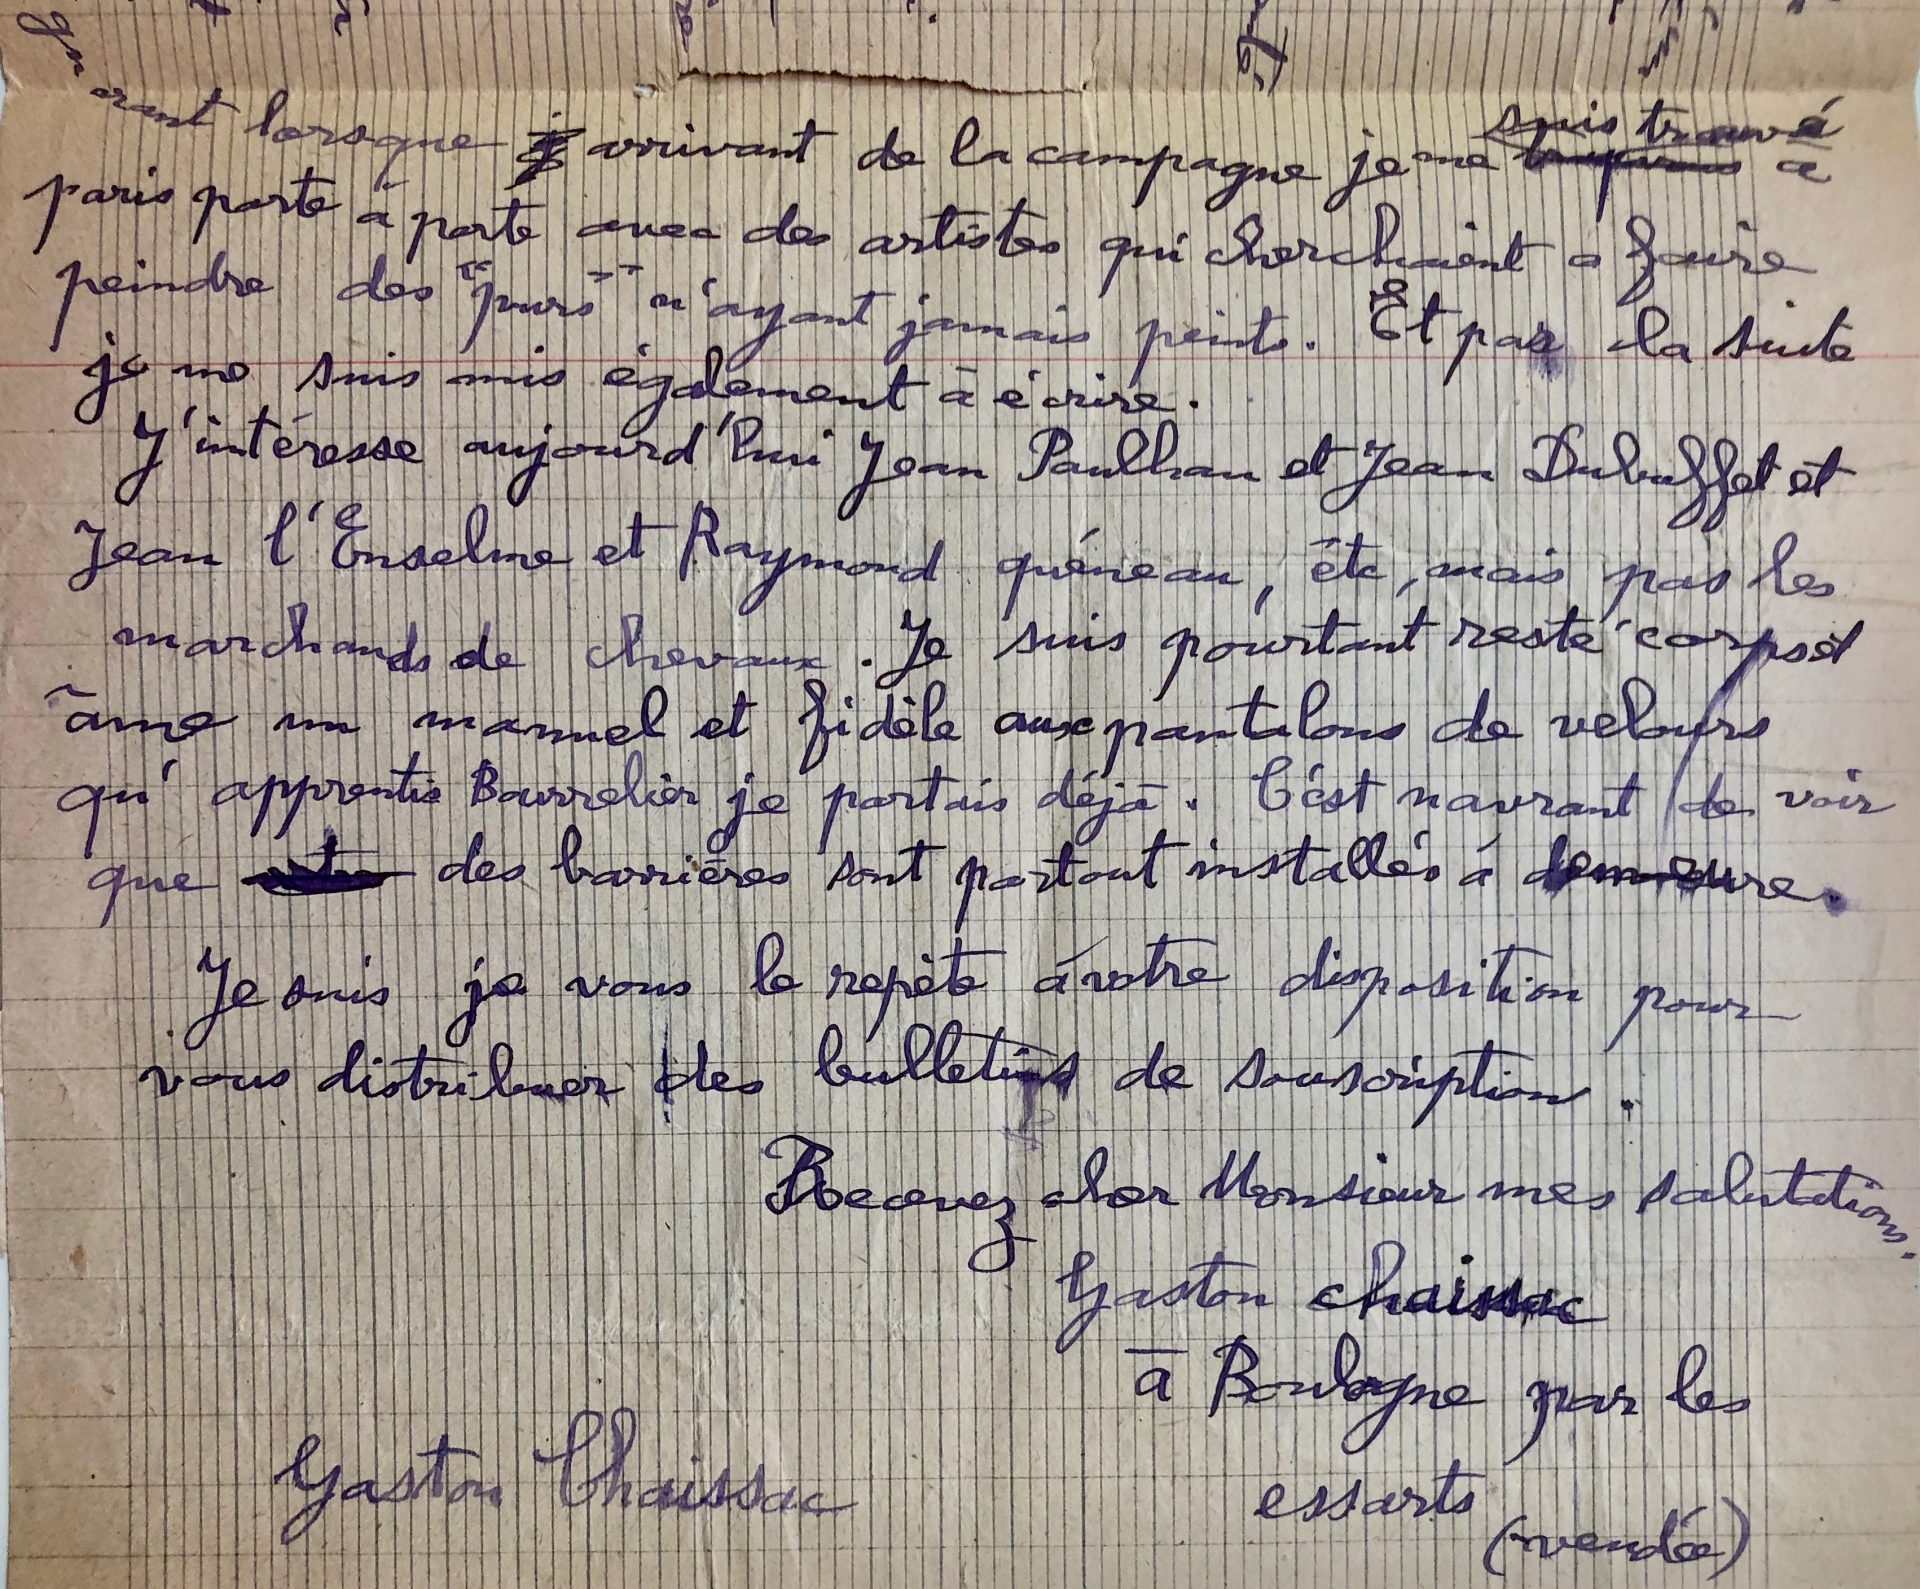 lorsque arrivant de la campagne je me suis trouvé à
paris porte à porte avec des artistes qui cherchaient a faire
peindre des "purs" n'ayant jamais peints. Et par la suite
je me suis mis également à écrire.
J'intéresse aujourd'hui Jean Paulhan et Jean Dubuffet et
Jean l'Enselme et Raymond quéneau, étc, mais pas les
marchands de chevaux. Je suis pourtant resté corps et
âme un manuel et fidèle aux pantalons de velours
qu' apprentis Bourrelier je portais déjà. C'est navrant de voir
que des barrières sont partout installés à demeure.
Je suis je vous le repète à votre disposition pour
vous distribuer des bulletins de souscription.
Recevez cher Monsieur mes salutations.
Gaston chaissac
à Boulogne par les
essarts
(vendée)
Gaston Chaissac